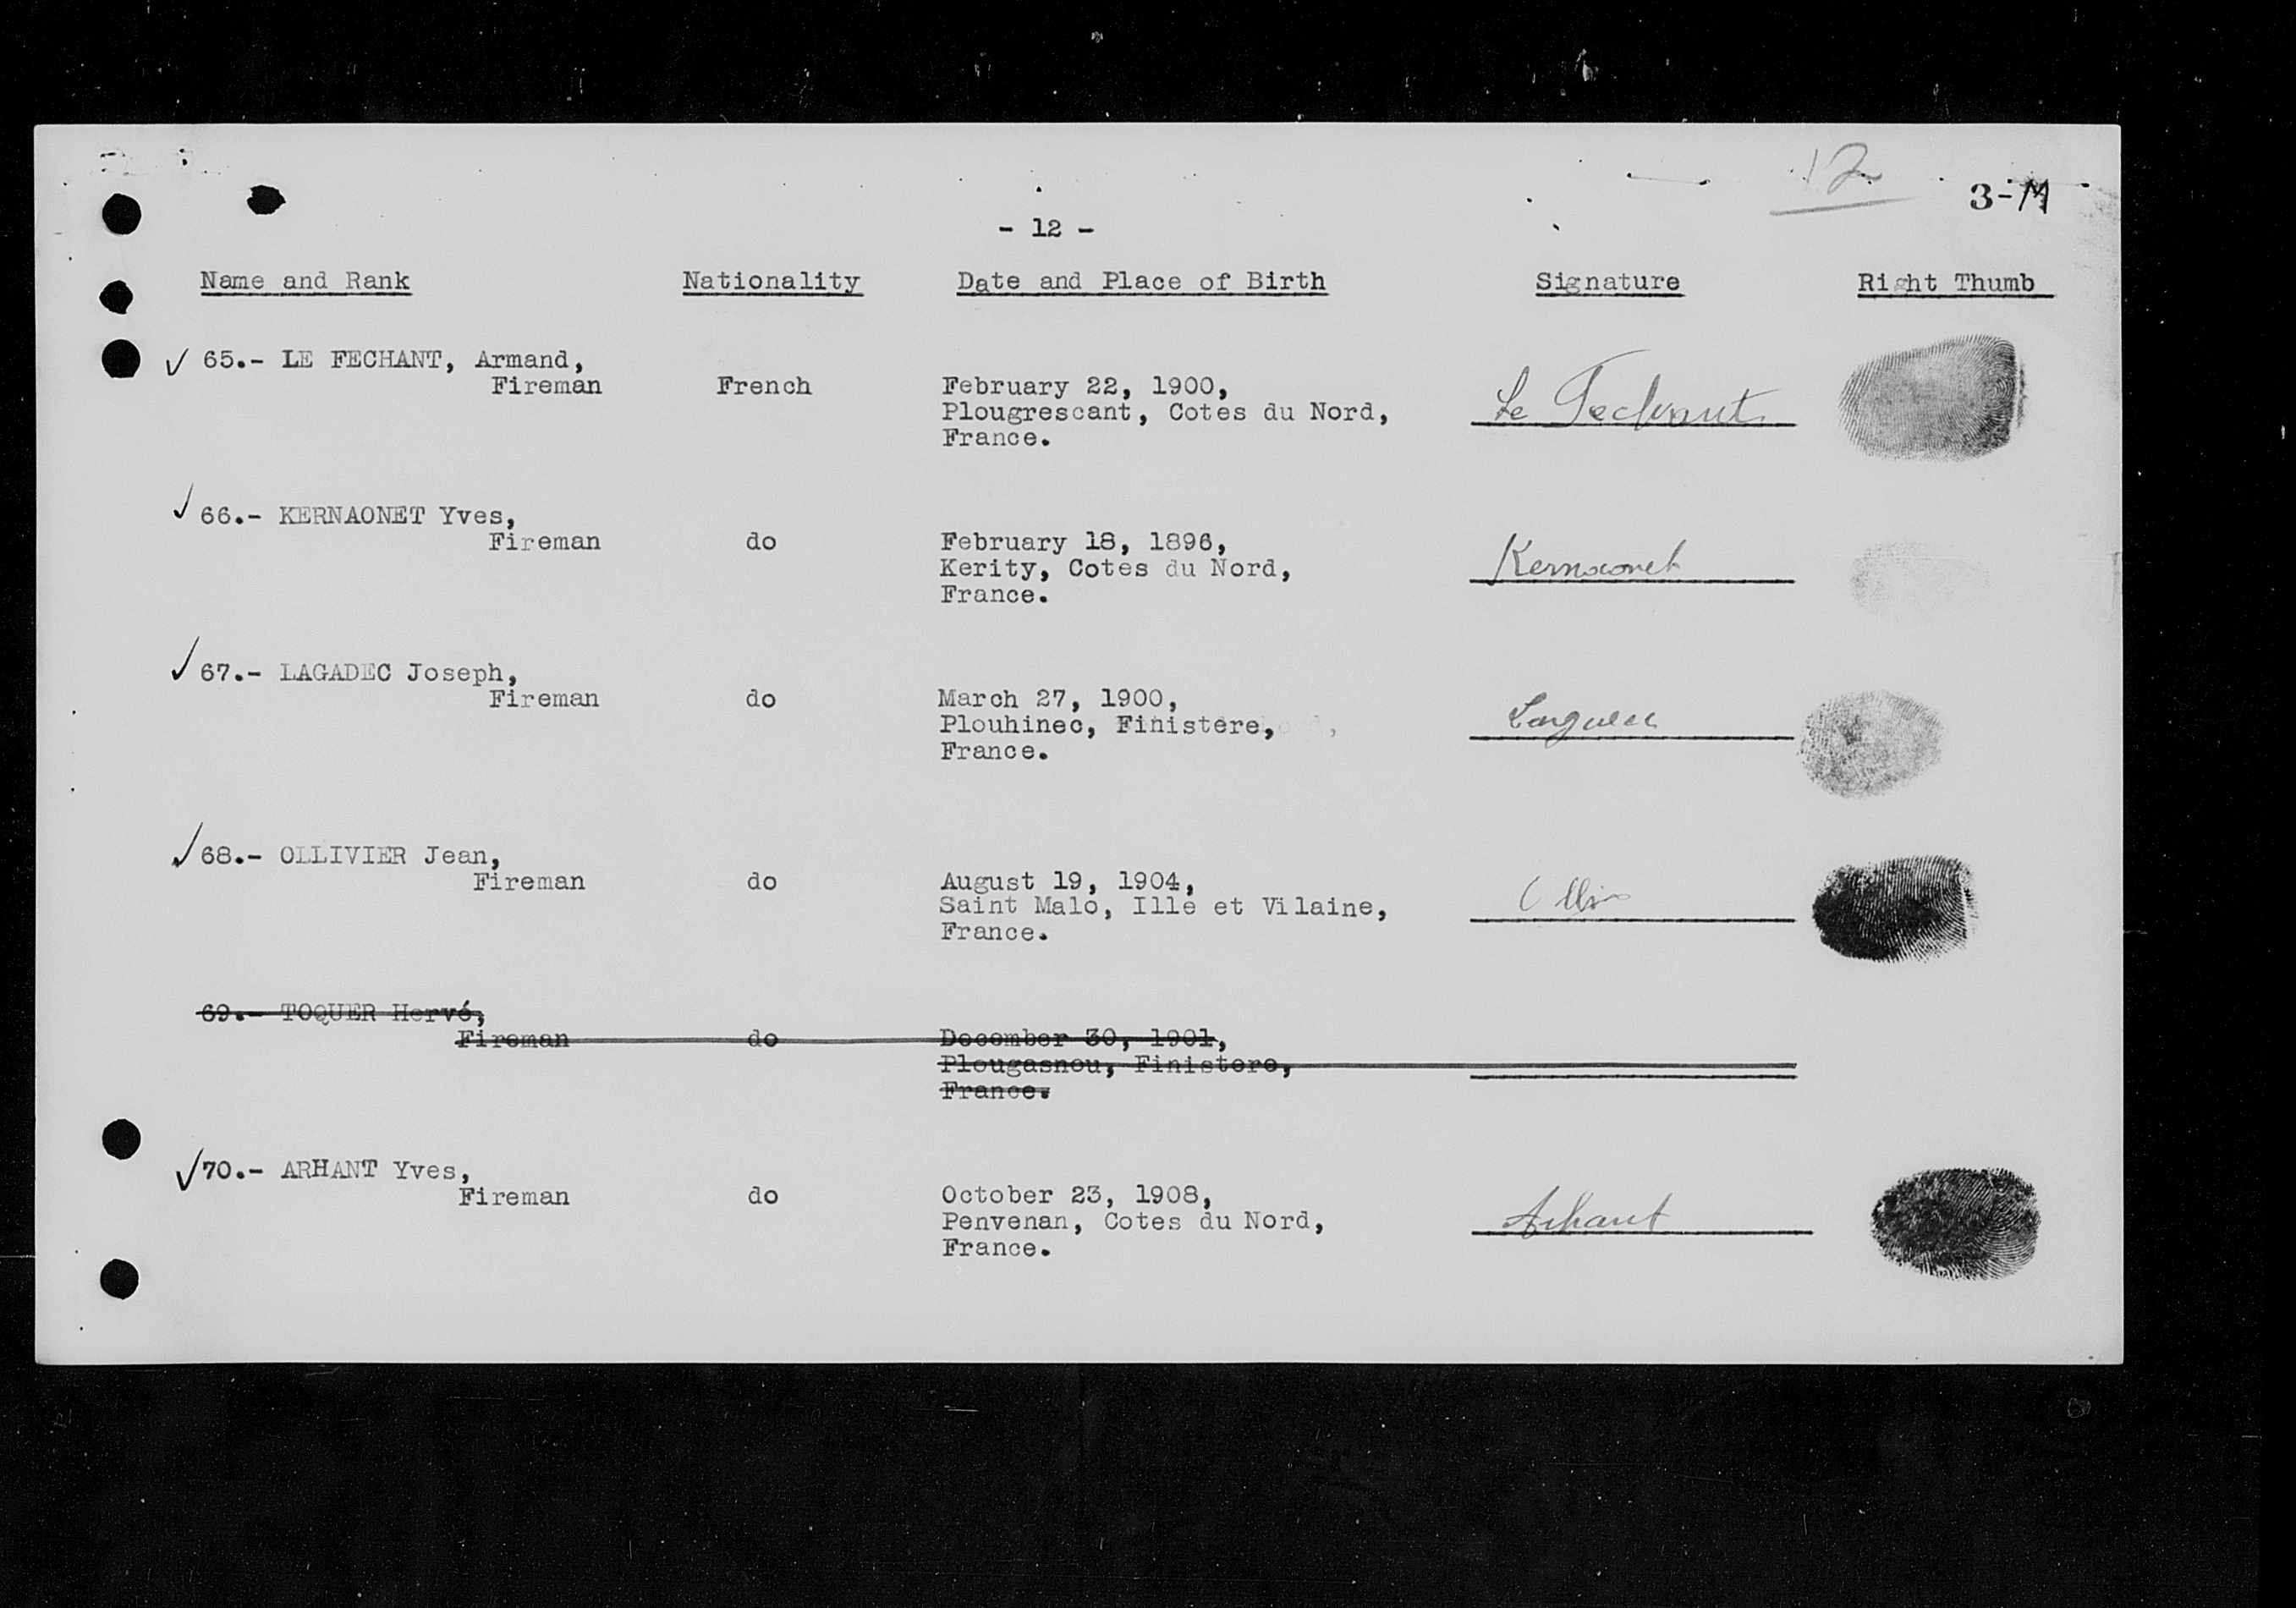 12
3-M
- 12 -
Name and Rank Nationality Date and Place of Birth Signature Right Thumb
✓ 65.- LE FECHANT, Armand,
Fireman French February 22, 1900,
Plougrescant, Cotes du Nord, Le Fechant
France.
✓ 66.- KERNAONET Yves,
Fireman do February 18, 1896,
Kerity, Cotes du Nord, Kernaonet
France.
✓ 67.- LAGADEC Joseph,
Fireman do March 27, 1900,
Plouhinec, Finistere,
France.
✓ 68.- OLLIVIER Jean,
Fireman do August 19, 1904,
Saint Malo, Ille et Vilaine,
France.
69.- TOQUER Hervé,
Fireman do December 30, 1901,
Plougasnou, Finistere,
France.
✓ 70.- ARHANT Yves,
Fireman do October 23, 1908,
Penvenan, Cotes du Nord, Arhant
France.